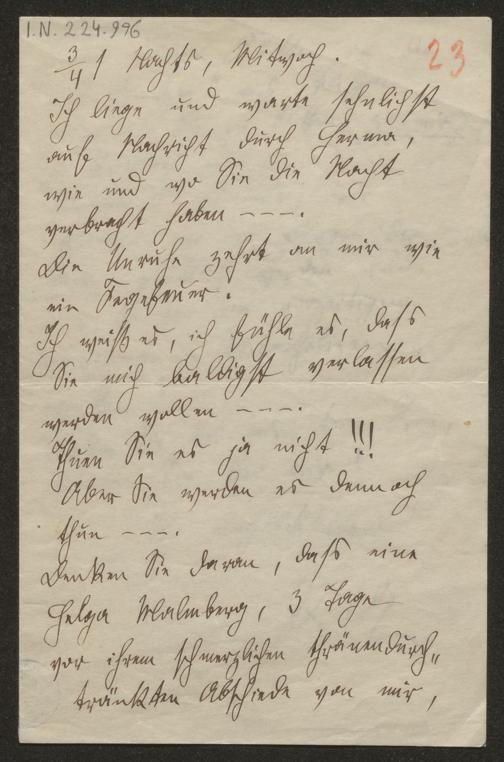 I.N. 224.996
23
3/4 1 Nachts, Mittwoch.
Ich liege und warte sehnlichst
auf Nachricht durch Herma,
wie und wo Sie die Nacht
verbracht haben ---.
Die Unruhe zehrt an mir wie
ein Fegefeuer.
Ich weiß es, ich fühle es, dass
Sie mich baldigst verlassen
werden wollen ---.
Thuen Sie es ja nicht!!!
Aber Sie werden es dennoch
thun ---.
Denken Sie daran, dass eine
Helga Malmberg, 3 Tage
vor ihrem schmerzlichen thränendurch„
tränkten Abschiede von mir,